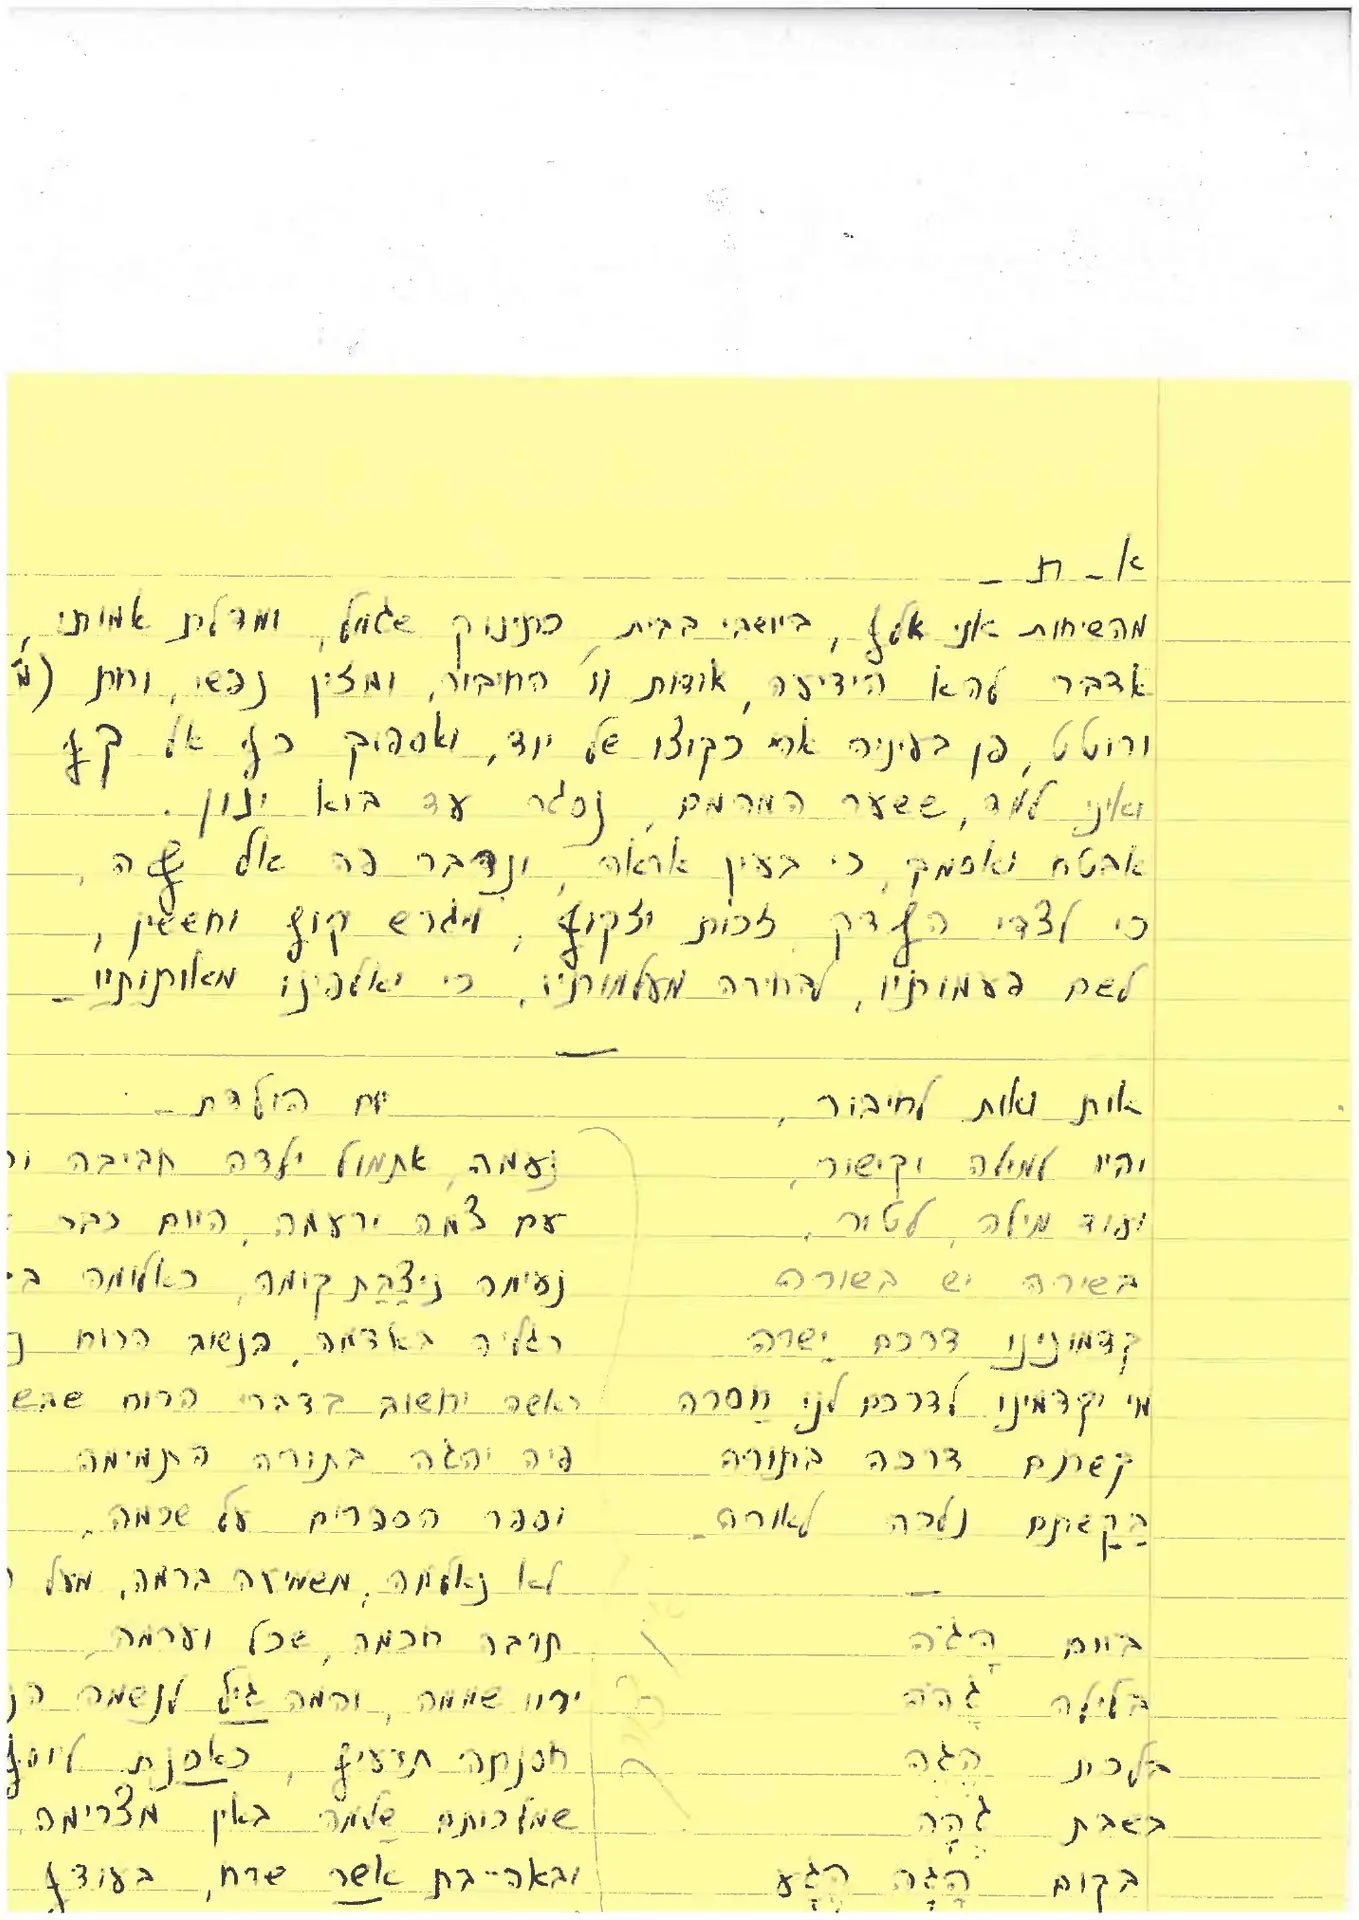 א - ת -
מהשיחות אני אלף, ביושבי בבית, כתינוק שגמל, ומדלת אמותי,
אדבר להא הידיעה, אודות וו החיבור, ומזין נפשי, וחת
ורוטט, פן בעיניה אהי כקוצו של יוד, ואספוק כף אל כף
ואיני למד, ששער המהמם, נסגר עד בוא ינון.
אבטח ואסמך, כי בעין אראה, ונדבר פה אל פה,
כי לצדי הצדק, זכות יזקוף, ויגרש קוף וחששין,
לשם פעמותיו, לבחירה מעלמותיו, כי יאלפינו מאותותיו -
אות ואות לחיבור,
והיו למילה וקישור,
ועוד מילה, לטור,
בשירה יש בשורה
קדמונינו דרכם ישרה
מי יקדמינו לדרכם לני חסרה
קשתם דרכה בתורה
בקשתם נלכה לאורה -
ביום הגה
בלילה גהה
בלכית הגה
בשבת גהה
בקום הגה הגע
יום הולדת -
נעמה, אתמול ילדה חביבה
עם צמה ירעמה, היום כבר
נעימה ניצבת קומה, כאלומה
רגליה באדמה, בנשוב הרוח
ראשה יחשוב בדברי הרוח
פיה יהגה בתורה התמימה
וספר הספרים על שכמה,
לא נאלמה, משמיעה ברמה, מעל
תדבר חכמה, שכל וערמה,
ירוו שממה, והמה גיל לנשמה
חסנתה תדעיף, כאסנת ליוסף
שמלכותם שלמה באין מצרימה
ובאה-בת אשר שרח, בעודף